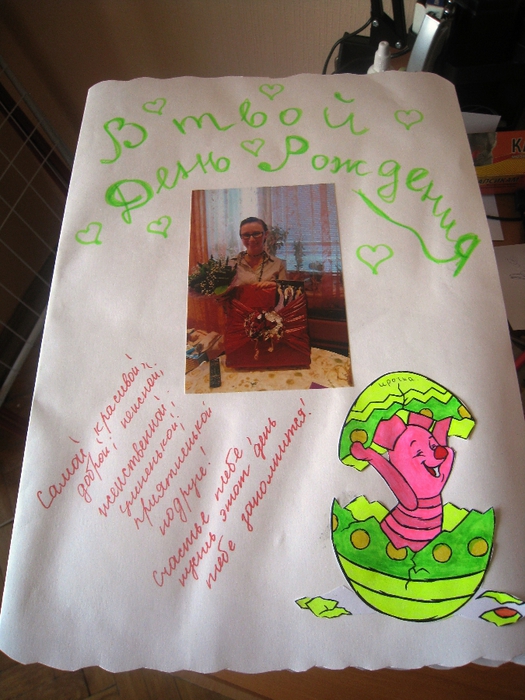 В твой
День Рождения
Самой красивой!
доброй, нежной,
женственной!
умненькой!
приятненькой
подруге!
Счастье тебе
пусть этот день
тебе запомнится!